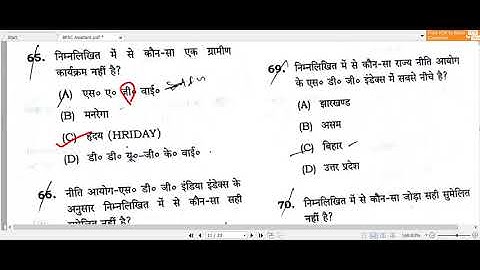 65. निम्नलिखित में से कौन-सा एक ग्रामीण
कार्यक्रम नहीं है?
(A) एस० ए० जी० वाई०
(B) मनरेगा
(C) हृदय (HRIDAY)
(D) डी० डी० यू०-जी० के० वाई०
66. नीति आयोग-एस० डी० जी० इंडिया इंडेक्स के
अनुसार निम्नलिखित में से कौन-सा सही
सुमेलित नहीं है?
69. निम्नलिखित में से कौन-सा राज्य नीति आयोग
के एस० डी० जी० इंडेक्स में सबसे नीचे है?
(A) झारखण्ड
(B) असम
(C) बिहार
(D) उत्तर प्रदेश
70. निम्नलिखित में से कौन-सा जोड़ा सही सुमेलित
नहीं है?